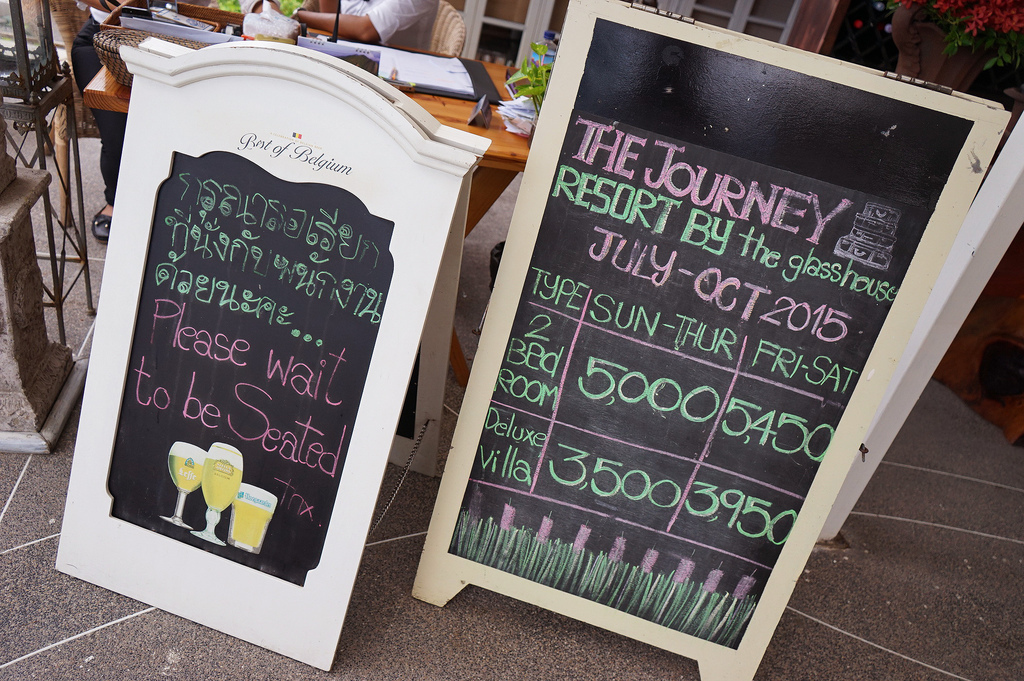 Best of Belgium
กรุณารอเรียก
ที่นั่งกับพนักงาน
ด้วยนะคะ...
Please wait
to be Seated
Tnx.
THE JOURNEY
RESORT BY the glasshouse
JULY - OCT 2015
TYPE SUN-THUR FRI-SAT
2 Bed ROOM 5,000 5,450
Deluxe Villa 3,500 3,950